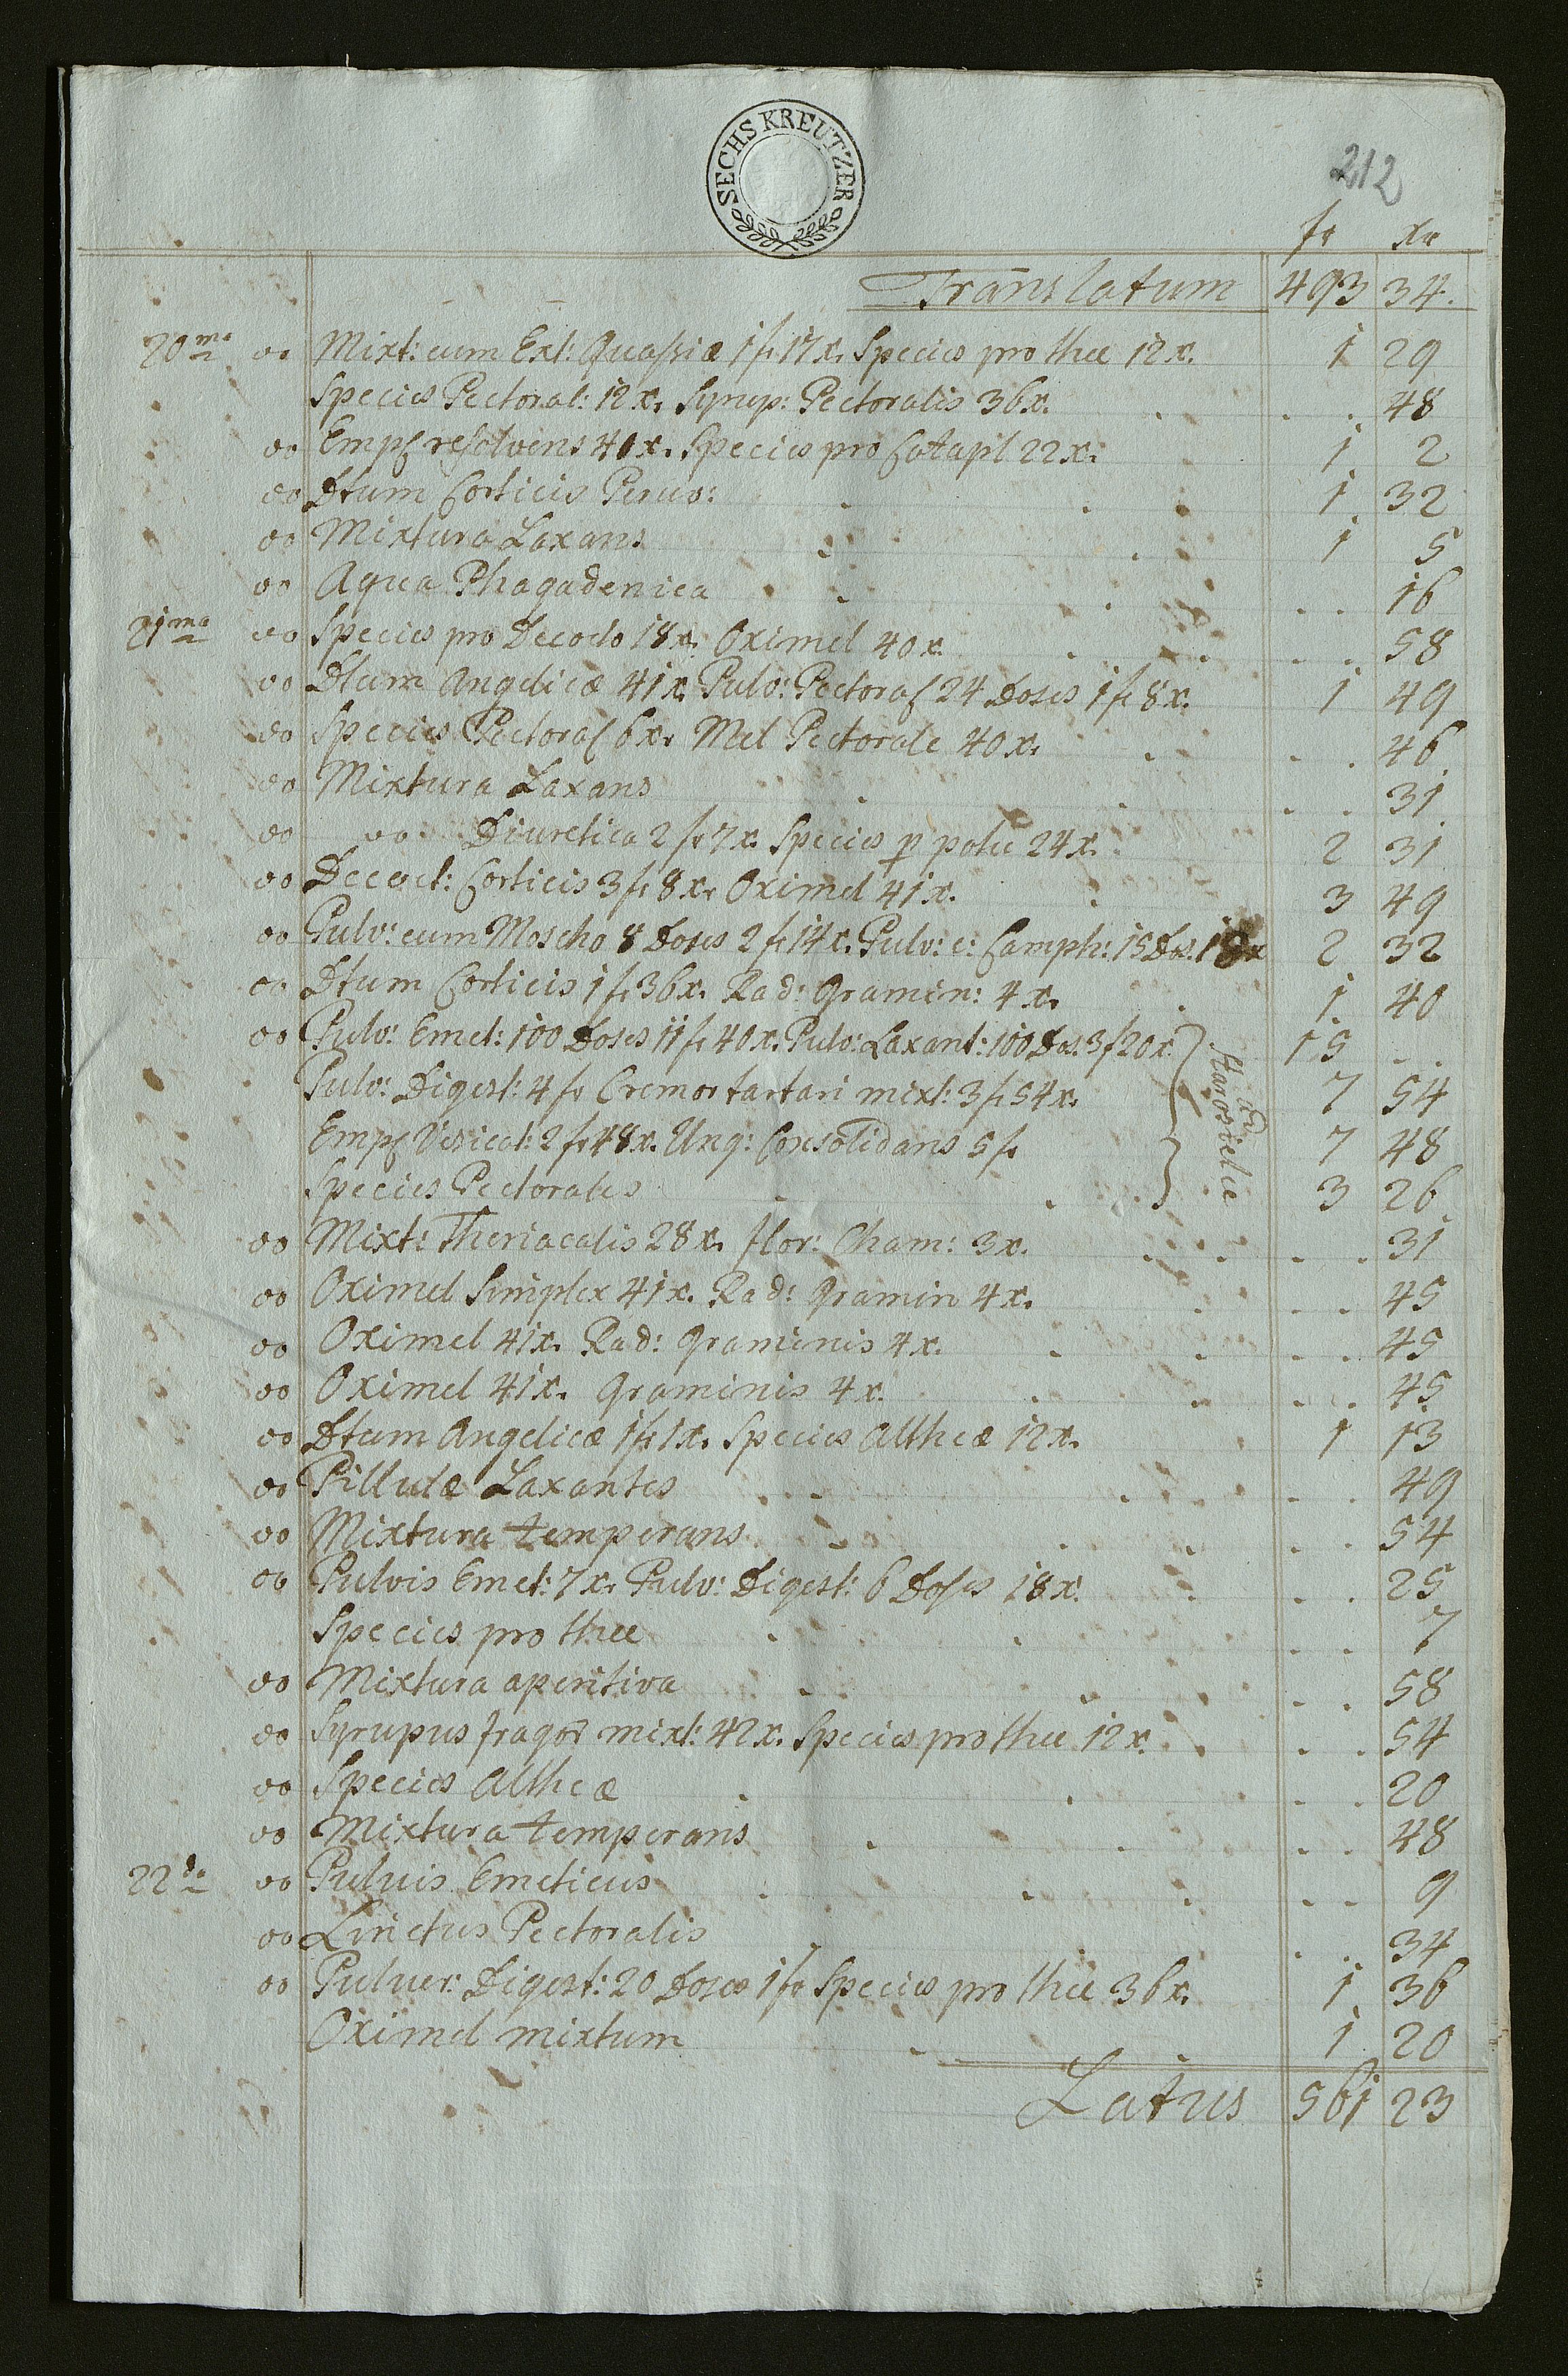 SECHS KREUTZER
212
fr xr
Translatum 493 34.
20ma oo Mixt: cum Ext: Quassiæ 1 fr 17 x. Species pro thee 12 x. 1 29
Species Pectoral: 12 x. Syrup: Pectoralis 36 x. . . . 48
oo Empl resolvens 40 x. Species pro Catapl 22 x. 1 2
oo Dtum Corticis Peruv: . . . 1 32
oo Mixtura Laxans . . 1 5
oo Aqua Phagadenica . . . . 16
21ma oo Species pro Decocto 18 x. Oximel 40 x. . . . . 58
oo Dtum Angelicæ 41 x. Pulv: Pectoral 24 Doses 1 fr 8 x. 1 49
oo Species Pectoral 6 x. Mel Pectorale 40 x. . . . 46
oo Mixtura Laxans . . . . 31
oo oo Diuretica 2 fr 7 x. Species p potu 24 x. 2 31
oo Decoct: Corticis 3 fr 8 x. Oximel 41 x. . 3 49
oo Pulv: cum Moscho 8 Doses 2 fr 14 x. Pulv: c: Camph: 15 Dos. 18 x 2 32
oo Dtum Corticis 1 fr 36 x. Rad: Gramin: 4 x. . 1 40
oo Pulv: Emet: 100 Doses 11 fr 40 x. Pulv: Laxant: 100 Dos. 3 f 20 x. 15 . .
Pulv: Digest: 4 fr Cremor tartari mixt: 3 fr 54 x. 7 54
ad
Empl Vesicat: 2 fr 48 x. Ung: Consolidans 5 fr 7 48
Species Pectorales . . . 3 26
oo Mixt: Theriacalis 28 x. flor: Cham: 3 x. . . . . 31
oo Oximel Simplex 41 x. Rad: Gramin 4 x. . . . 45
oo Oximel 41 x. Rad: Graminis 4 x. . . . . 45
oo Oximel 41 x. Graminis 4 x. . . . . 45
oo Dtum Angelicæ 1 fr 1 x. Species Altheæ 12 x. 1 13
oo Pillulæ Laxantes . . . . 49
oo Mixtura temperans . . . . . 54
oo Pulvis Emet: 7 x. Pulv: Digest: 6 Doses 18 x. . . . 25
Species pro thee . . . . 7
oo Mixtura aperitiva . . . . 58
oo Syrupus fragor mixt: 42 x. Species pro thee 12 x. . . . 54
oo Species Altheæ . . . . 20
oo Mixtura temperans . . . . 48
22da oo Pulvis Emeticus . . . . . 9
oo Linctus Pectoralis . . . 34
oo Pulver: Digest: 20 Doses 1 fr Species pro thee 36 x. 1 36
Oximel mixtum . . 1 20
Latus 561 23